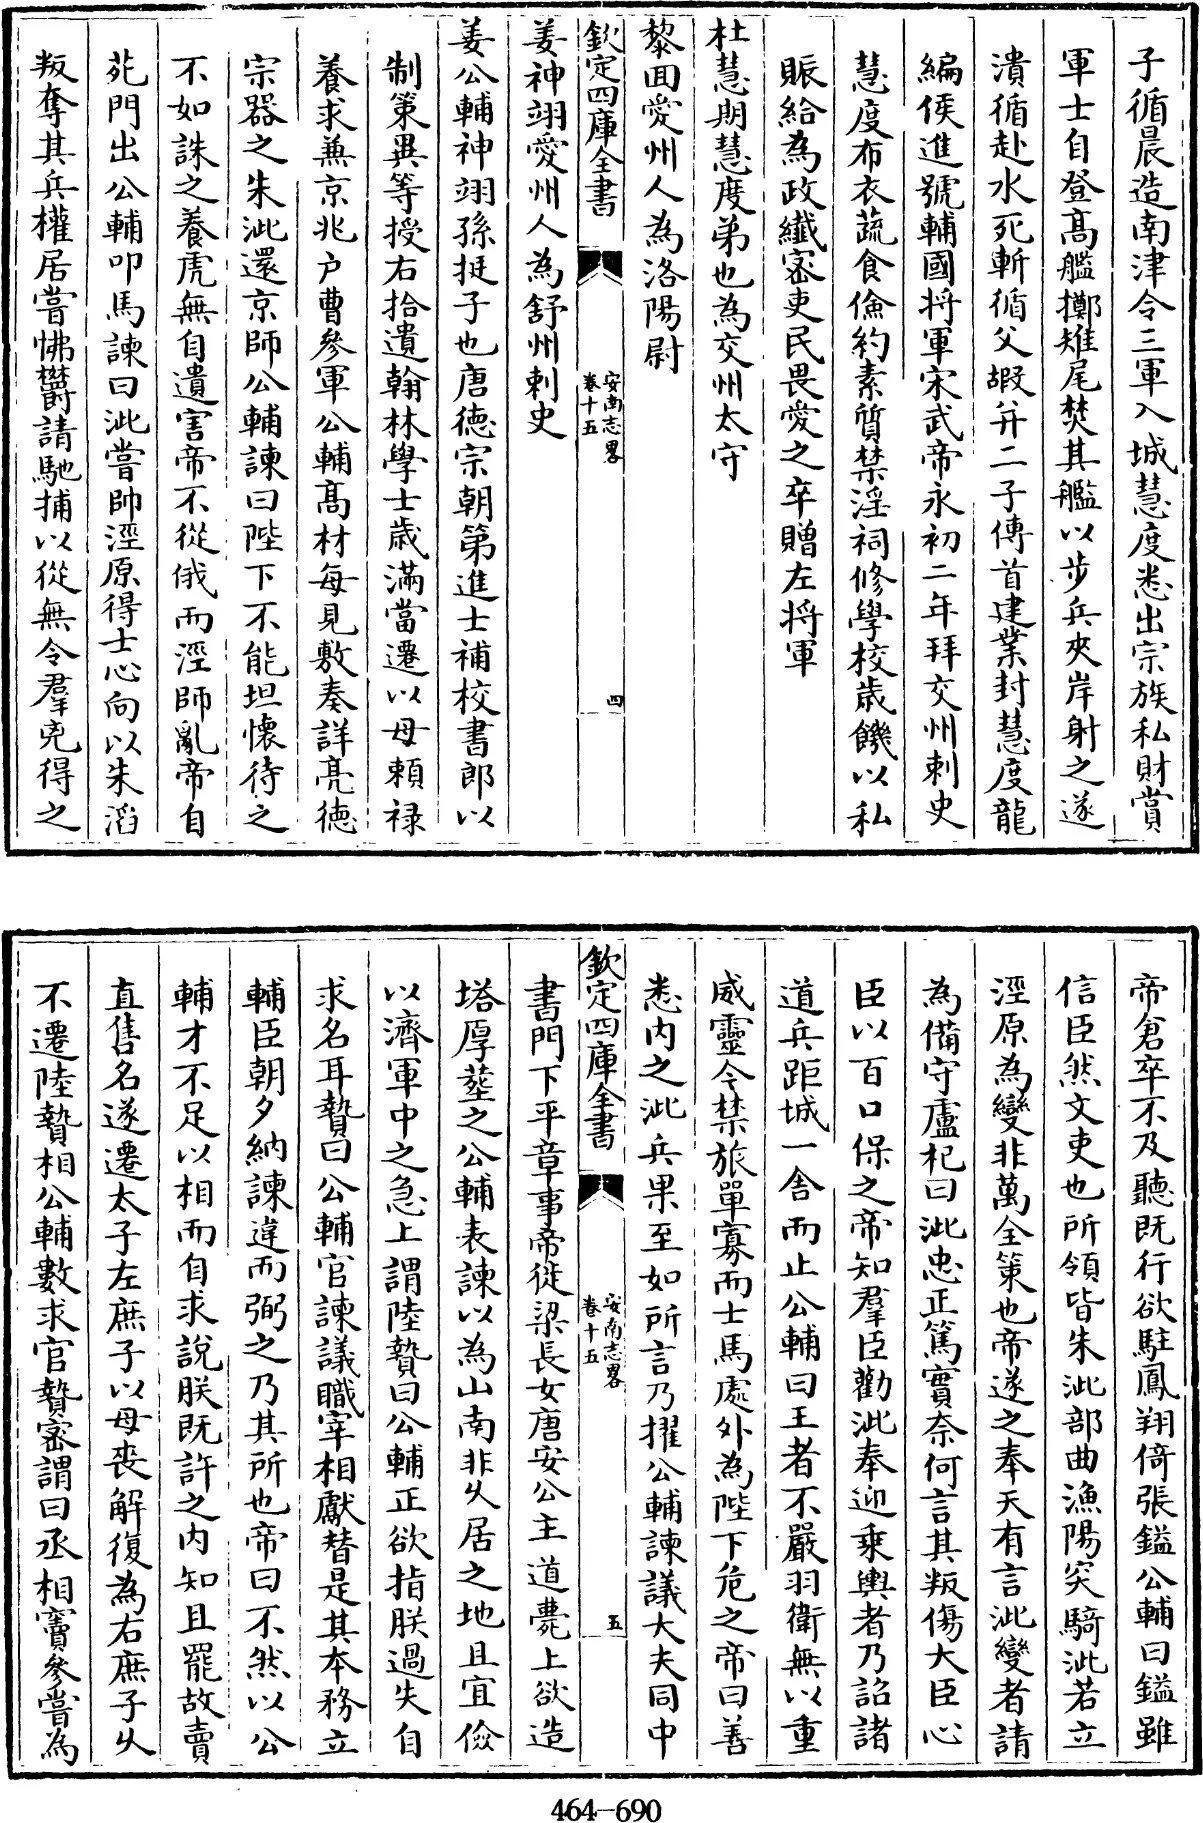 子循晨造南津令三軍入城慧度悉出宗族私財賞
軍士自登髙艦擲雉尾焚其艦以步兵夾岸射之遂
潰循赴水死斬循父嘏并二子傳首建業封慧度龍
編侯進號輔國將軍宋武帝永初二年拜交州刺史
慧度布衣蔬食儉約素質禁淫祠修學校歳饑以私
賑給為政纎宻吏民畏愛之卒贈左将軍
杜慧期慧度弟也為交州太守
黎回愛州人為洛陽尉
欽定四庫全書
安南志畧
卷十五
四
姜神翊愛州人為舒州刺史
姜公輔神翊孫挺子也唐德宗朝第進士補校書郎以
制策異等授右拾遺翰林學士歳滿當遷以母頼禄
養求兼京兆户曹參軍公輔髙材每見敷奏詳亮徳
宗器之朱泚還京師公輔諫曰陛下不能坦懐待之
不如誅之養虎無自遺害帝不從俄而涇師亂帝自
苑門出公輔叩馬諫曰泚嘗帥涇原得士心向以朱滔
叛奪其兵權居嘗怫欝請馳捕以從無令羣兇得之
帝倉卒不及聽既行欲駐鳳翔倚張鎰公輔曰鎰雖
信臣然文吏也所領皆朱泚部曲漁陽突騎泚若立
涇原為變非萬全策也帝遂之奉天有言泚變者請
為備守盧杞曰泚忠正篤實奈何言其叛傷大臣心
臣以百口保之帝知羣臣勸泚奉迎乗輿者乃詔諸
道兵距城一舍而止公輔曰王者不嚴羽衛無以重
威靈今禁旅單寡而士馬處外為陛下危之帝曰善
悉内之泚兵果至如所言乃擢公輔諫議大夫同中
欽定四庫全書
安南志畧
卷十五
五
書門下平章事帝徙梁長女唐安公主道薨上欲造
塔厚塟之公輔表諫以為山南非乆居之地且宜儉
以濟軍中之急上謂陸贄曰公輔正欲指朕過失自
求名耳贄曰公輔官諫議職宰相獻替是其本務立
輔臣朝夕納諫違而弼之乃其所也帝曰不然以公
輔才不足以相而自求説朕既許之内知且罷故賣
直售名遂遷太子左庶子以母丧解復為右庶子乆
不遷陸贄相公輔數求官贄宻謂曰丞相竇參嘗為
464-690